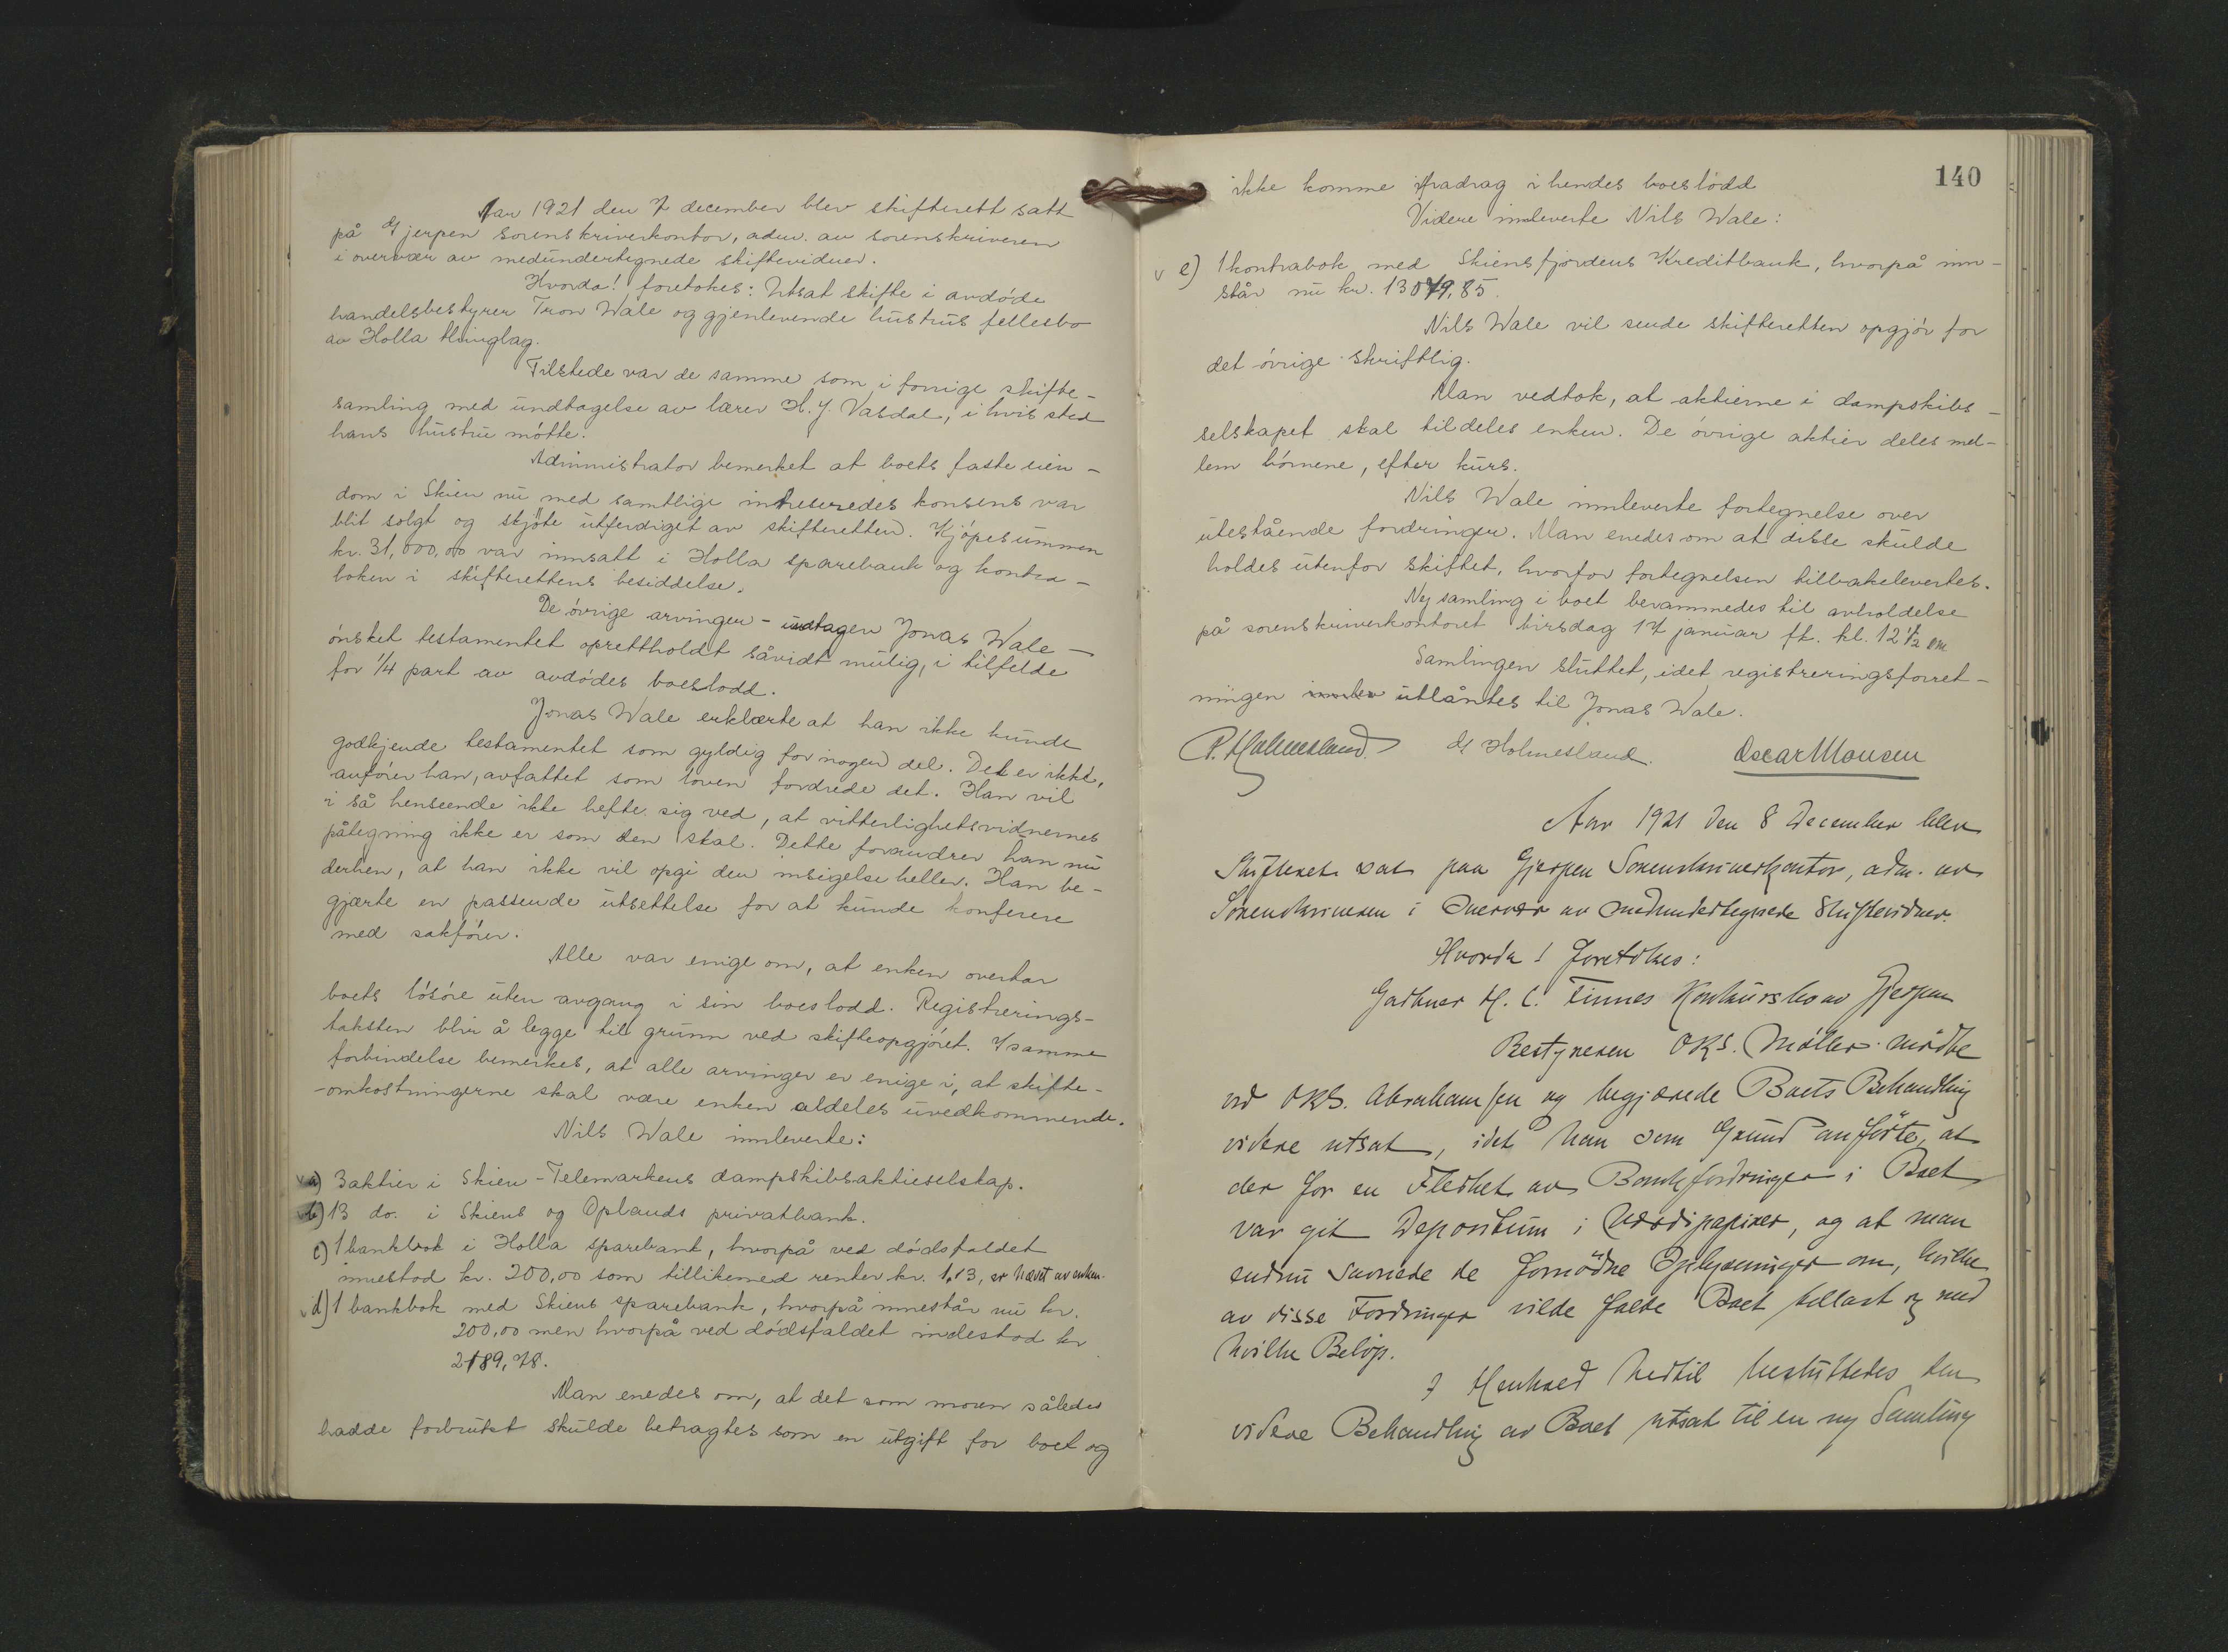 Aar 1921 den 7 december blev skifterett satt
på Gjerpen sorenskriverkontor, adm. av sorenskriveren
i overvær av medundertegnede skiftevidner.
Hvorda! foretokes: Utsat skifte i avdøde
handelsbestyrer Tron Wale og gjenlevende hustrus fellesbo
av Holla thinglag.
Tilstede var de samme som i forrige skifte-
samling med undtagelse av lærer H. J. Vasdal, i hvis sted
hans hustru møtte.
Administrator bemerket at boets faste eien-
dom i Skien nu med samtlige intreseredes konsens var
blit solgt og skjøte utferdiget av skifteretten. Kjøpesummen
kr. 31,000,00 var innsatt i Holla sparebank og kontra-
boken i skifterettens besiddelse.
De øvrige arvinger - undtagen Jonas Wale -
ønsket testamentet oprettholdt såvidt mulig, i tilfelde
for 1/4 part av avdødes boeslodd.
Jonas Wale erklærte at han ikke kunde
godkjende testamentet som gyldig for nogen del. Det er ikke,
anfører han, avfattet som loven fordrede det. Han vil
i så henseende ikke hefte sig ved, at vitterlighetsvidnernes
påtegning ikke er som den skal. Dette forandrer han nu
derhen, at han ikke vil opgi den insigelse heller. Han be-
gjærte en passende utsettelse for at kunde konferere
med sakfører.
Alle var enige om, at enken overtar
boets løsøre uten avgang i sin boeslodd. Registrerings-
taksten blir å legge til grunn ved skifteopgjøret. I samme
forbindelse bemerkes, at alle arvinger er enige i, at skifte-
-omkostningerne skal være enken aldeles uvedkommende.
Nils Wale innleverte:
v a) 3 aktier i Skien-Telemarkens dampskibsaktieselskap.
v b) 13 do. i Skiens og Oplands privatbank.
c) 1 bankbok i Holla sparebank, hvorpå ved dødsfaldet
innestod kr. 200,00 som tillikemed renter kr. 1,13, er hævet av enken.
v d) 1 bankbok med Skiens sparebank, hvorpå innestår nu kr.
200,00 men hvorpå ved dødsfaldet indestod kr
2189,78.
Man enedes om, at det som moren således
hadde forbrukt skulde betragtes som en utgift for boet og
140
ikke komme til fradrag i hendes boeslodd
Videre innleverte Nils Wale:
v e) 1 kontrabok med Skiensfjordens Kreditbank, hvorpå inn-
står nu kr. 13079,85.
Nils Wale vil sende skifteretten opgjør for
det øvrige skriftlig.
Man vedtok, at aktierne i dampskibs-
selskapet skal tildeles enken. De øvrige aktier deles mel-
lem børnene, efter kurs.
Nils Wale innleverte fortegnelse over
utestående fordringer. Man enedes om at disse skulde
holdes utenfor skiftet, hvorfor fortegnelsen tilbakelevertes.
Ny samling i boet berammedes til avholdelse
på sorenskriverkontoret tirsdag 17 januar ft. kl. 12 1/2 em
Samlingen sluttet, idet registreringsforret-
ningen utlåntes til Jonas Wale.
P. Holmesland. G Holmesland. Oscar Monsen
Aar 1921 den 8 December blev
Skifteret sat paa Gjerpen Sorenskriverkontor, adm. av
Sorenskriveren i Overvær av medundertegnede Skiftevidner.
Hvorda! foretokes:
Gartner H. C. Tinnes Konkursbo av Gjerpen
Bestyreren ORS. Møller mødte
ved ORS. Abrahamsen og begjærede Boets Behandling
videre utsat, idet han som Grund anførte, at
der for en Flerhet av Bankfordringer i Boet
var git Depositum i Værdipapirer, og at man
endnu savnede de fornødne Oplysninger om, hvilke
av disse Fordringer vilde falde Boet tillast og med
hvilke Beløp.
I Henhold hertil besluttedes den
videre Behandling av Boet utsat til en ny Samling